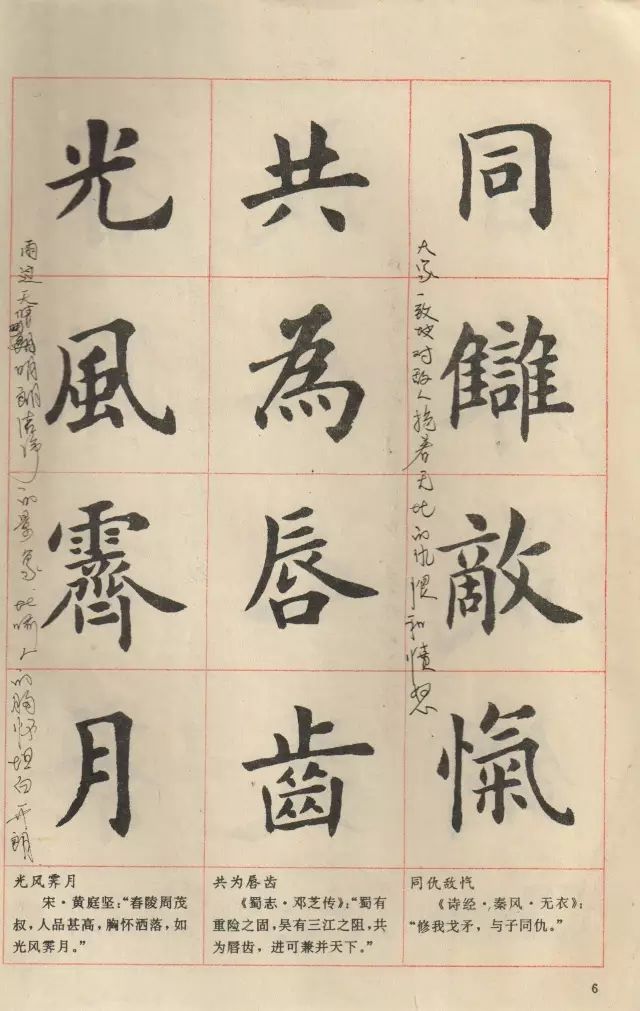 同讎敵愾
大家一致地对敌人抱着无比的仇恨和愤怒
共為唇齒
光風霽月
雨过天晴明朗洁净的景象 比喻人的胸怀坦白开朗
光风霁月
宋·黄庭坚：“舂陵周茂
叔，人品甚高，胸怀洒落，如
光风霁月。”
共为唇齿
《蜀志·邓芝传》：“蜀有
重险之固，吴有三江之阻，共
为唇齿，进可兼并天下。”
同仇敌忾
《诗经·秦风·无衣》：
“修我戈矛，与子同仇。”
6